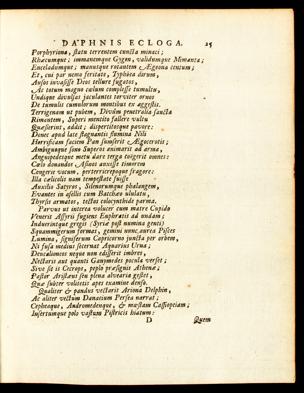 DAPHNIS ECLOGA. 25
Porphyrionа, statu terrentem cuncta minaci;
Rhæcumque; immanemque Gygen, validumque Mimanta;
Enceladumque; manuque rotantem Ægeona centum;
Et, cui par nemo feritate, Typhœa dirum,
Ausos invasisse Deos tellure fugatos,
Ac totum magno cælum complesse tumultu,
Undique divulsas jaculantes torviter ornos
De tumulis cumulorum montibus ex aggestis.
Terrigenam ut pubem, Divûm penetralia sancta
Rimantem, Superi mentito fallere vultu
Quæsierint, addit; dispertitosque pavore:
Donec apud late stagnantis flumina Nili
Horrificam faciem Pan sumserit Ægocerotis;
Ambiguùsque sinu Superos animarit ad arma,
Anguipedesque metu dare terga coëgerit omnes:
Cælo donandos Asinos auxisse timorem
Congerie vocum, perterricrepoque fragore:
Illa cælicolis nam tempestate fuisse
Auxilio Satyros, Silenorumque phalangem,
Euantes in asellis cum Baccheo ululatu,
Thyrsis armatos, tectos colocynthide parma.
Parvus ut interea volucer cum matre Cupido
Venerit Assyrii fugiens Euphratis ad undam;
Induerintque gregis (Syriæ post numina genti)
Squammigerum formas, gemini nunc aurea Pisces
Lumina, signiferum Capricorno juncta per orbem,
Ni fusa medius secernat Aquarius Urna:
Deucalioneus neque non edisserit imbres,
Nectaris aut quanti Ganymedes pocula verset;
Sive sit is Cecrops, peplo præsignis Athenæ;
Pastor Aristæus seu plena alvearia gestet,
Quæ suber vulitetis apes examine denso.
Qualiter & pandus vectarit Ariona Delphin,
Ac aliter vectum Danaeium Persea narrat;
Cepheaque, Andromedenque, & mæstam Cassiopeiam;
Insertumque polo vastum Pistricis hiatum:
D Quem